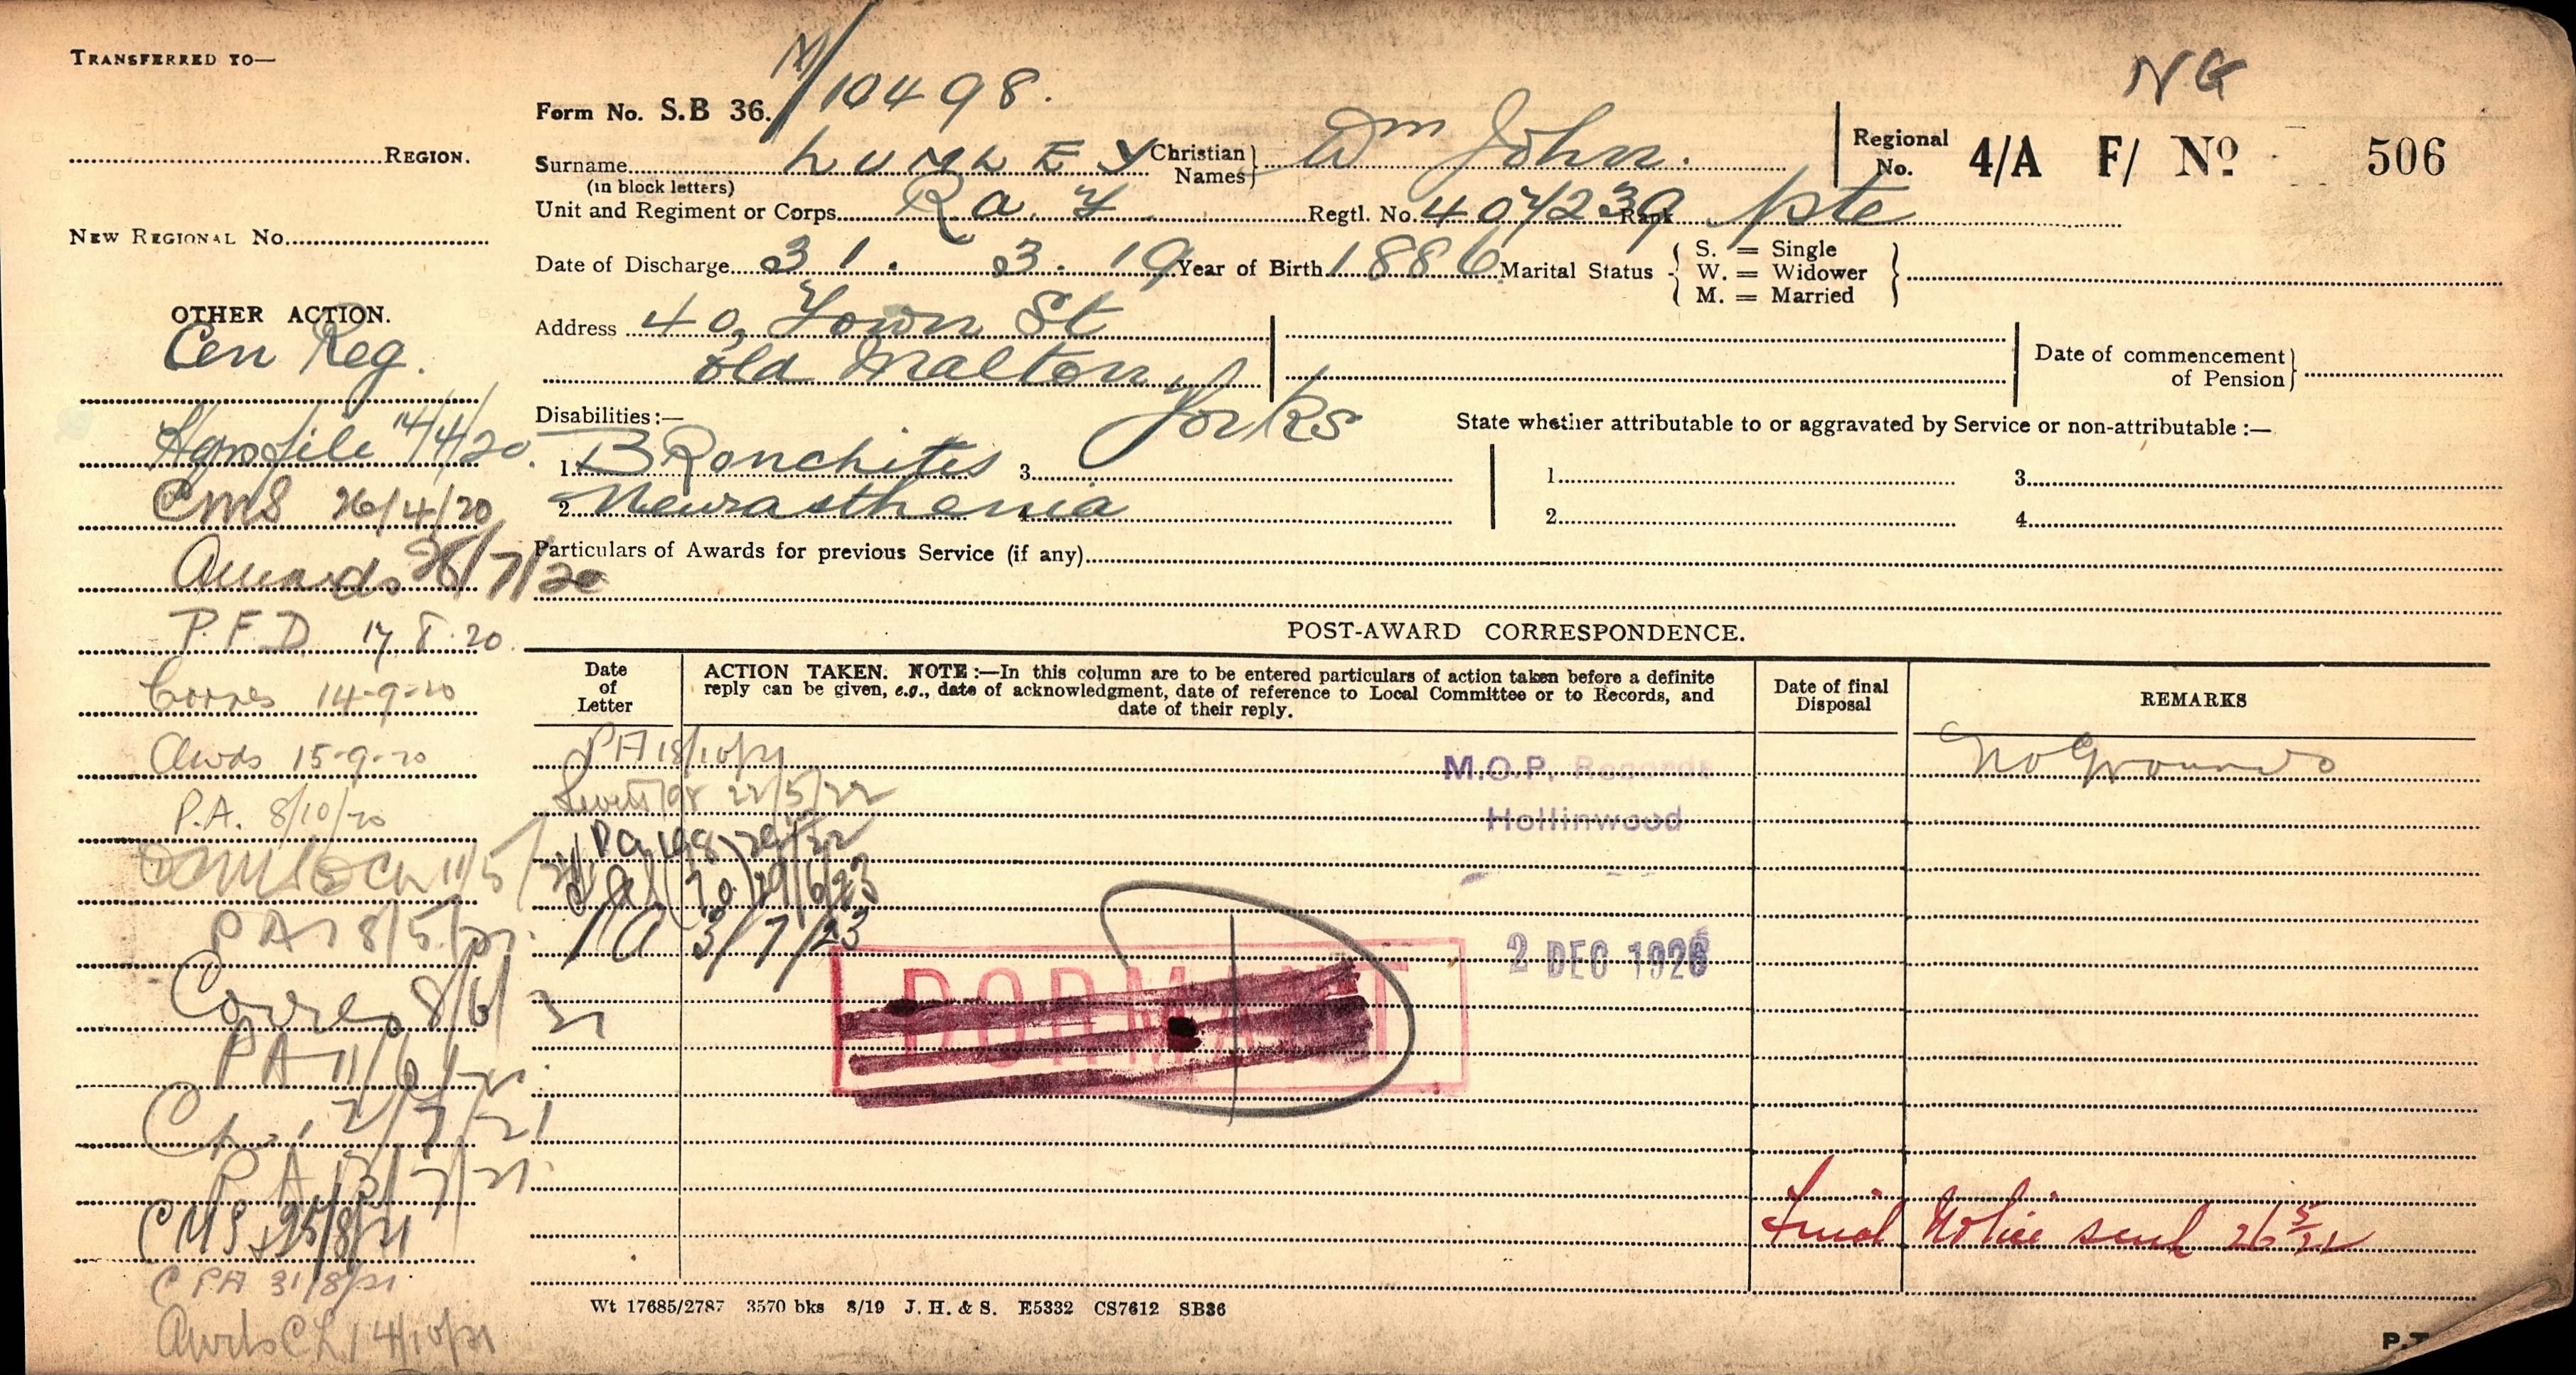 TRANSFERRED TO—
REGION.
NEW REGIONAL No.
OTHER ACTION.
Cen Reg.
14/4/20
CMS 26/4/20
Awards 28/7/20
P.F.D. 17.8.20
Corres 14-9-20
Awds 15-9-20
P.A. 8/10/20
PA 18/5/21
Corres 8/6/21
PA 11/6/21
2/7/21
PA 13/7/21
CMS 25/8/21
C PA 31/8/21
14/10/21
Form No. S.B 36. /10498.
NG
Surname LUMLEY Christian Names Wm John.
(in block letters)
Regional No. 4/A F/ No 506
Unit and Regiment or Corps R a. F Regtl. No. 404239 Rank Pte
Date of Discharge 31. 3. 19 Year of Birth 1886 Marital Status
S. = Single
W. = Widower
M. = Married
Address 40, Town St
Old Malton
Yorks
Date of commencement of Pension
Disabilities :—
State whether attributable to or aggravated by Service or non-attributable :—
1. Bronchitis 3. 1. 3.
2. Neurasthenia 4. 2. 4.
Particulars of Awards for previous Service (if any)
POST-AWARD CORRESPONDENCE.
Date of Letter
ACTION TAKEN. NOTE :—In this column are to be entered particulars of action taken before a definite
reply can be given, e.g., date of acknowledgment, date of reference to Local Committee or to Records, and
date of their reply.
Date of final Disposal
REMARKS
PA 18/10/21
22/5/22
29/6/23
PA 3/7/23
M.O.P. Records
Hollinwood
No Grounds
2 DEC 1926
DORMANT
Final Notice sent 26/5/21
Wt 17685/2787 3570 bks 8/19 J. H. & S. E5332 CS7612 SB36